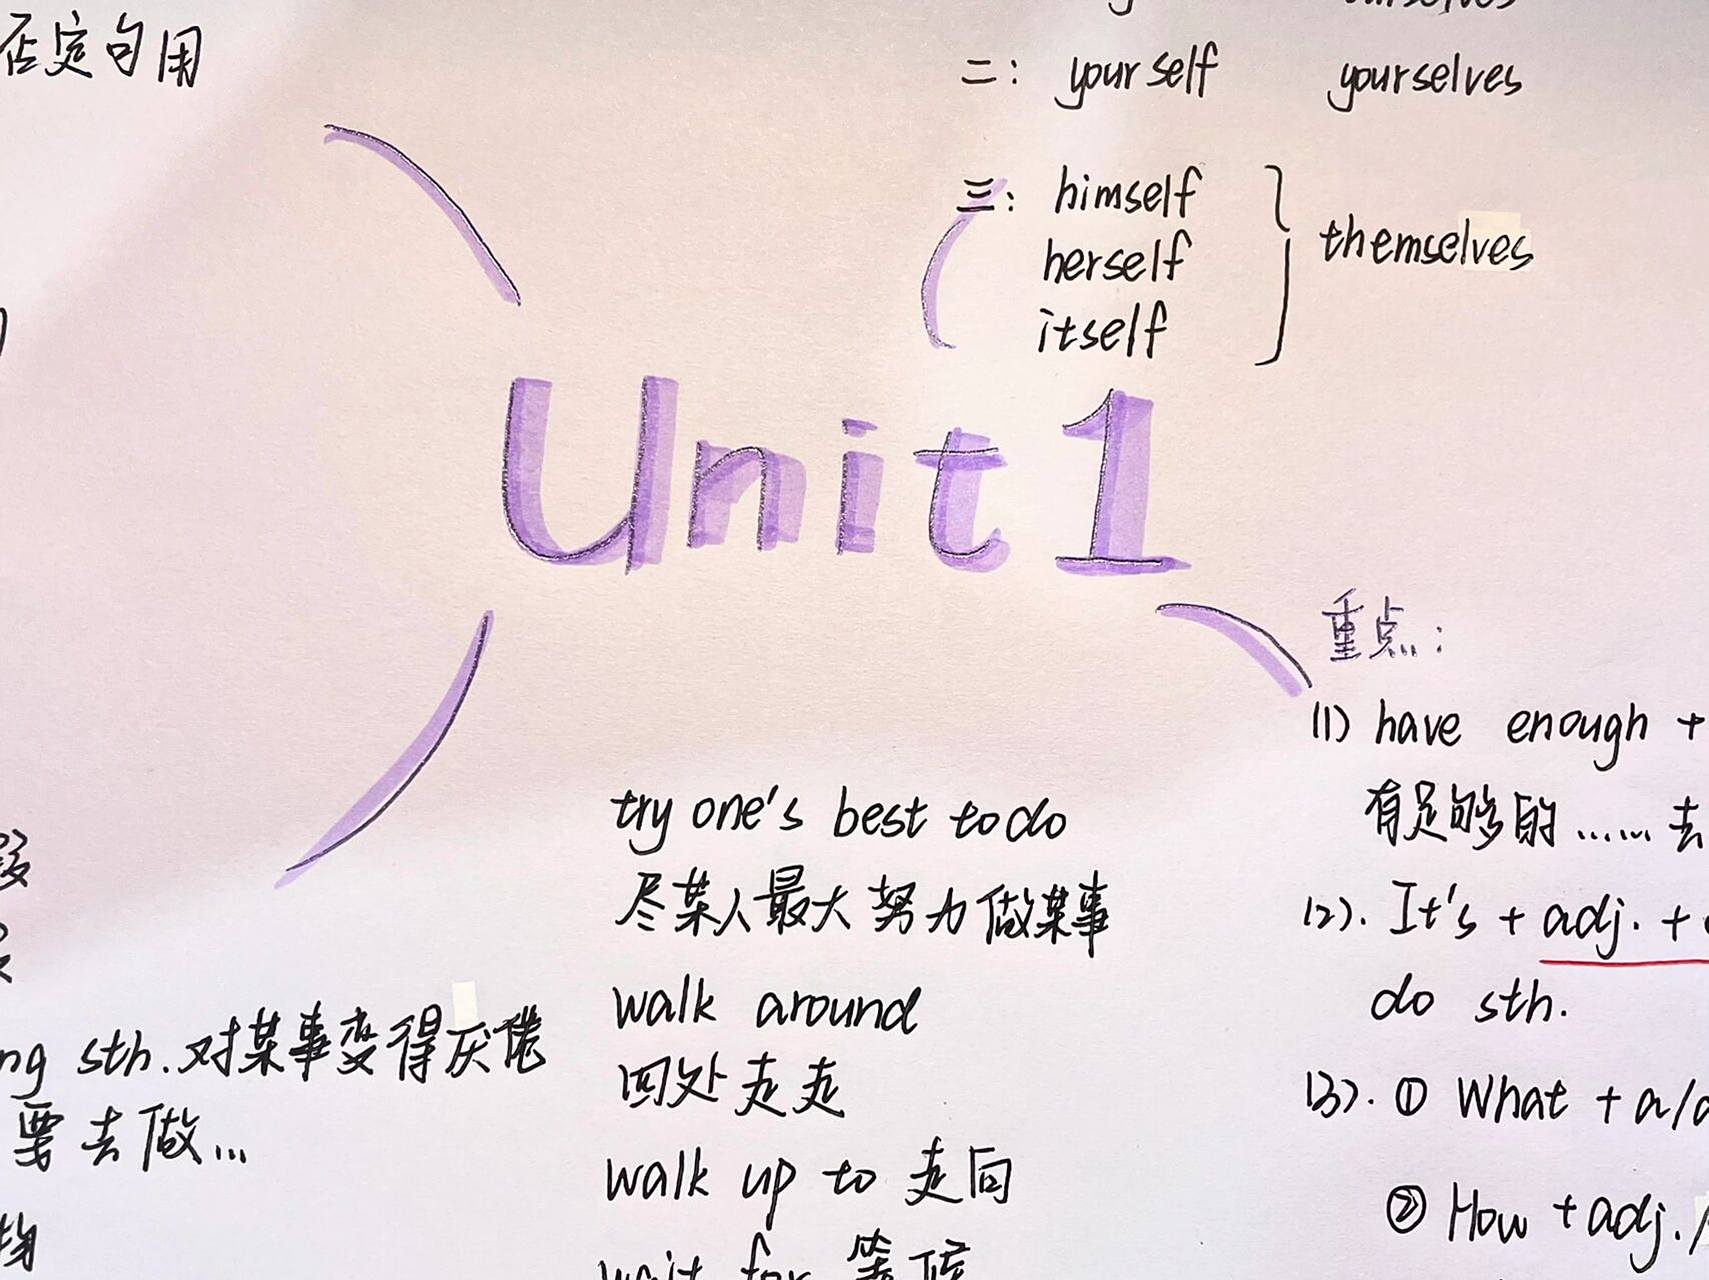 否定句用
二： yourself yourselves
三： himself
herself
itself
themselves
Unit 1
重点：
(1) have enough +
有足够的……去
(2). It's + adj. +
do sth.
(3). ① What + a/a
② How + adj. /
try one's best to do
尽某人最大努力做某事
walk around
四处走走
walk up to 走向
wait for 等候
ng sth. 对某事变得厌倦
要去做...
物